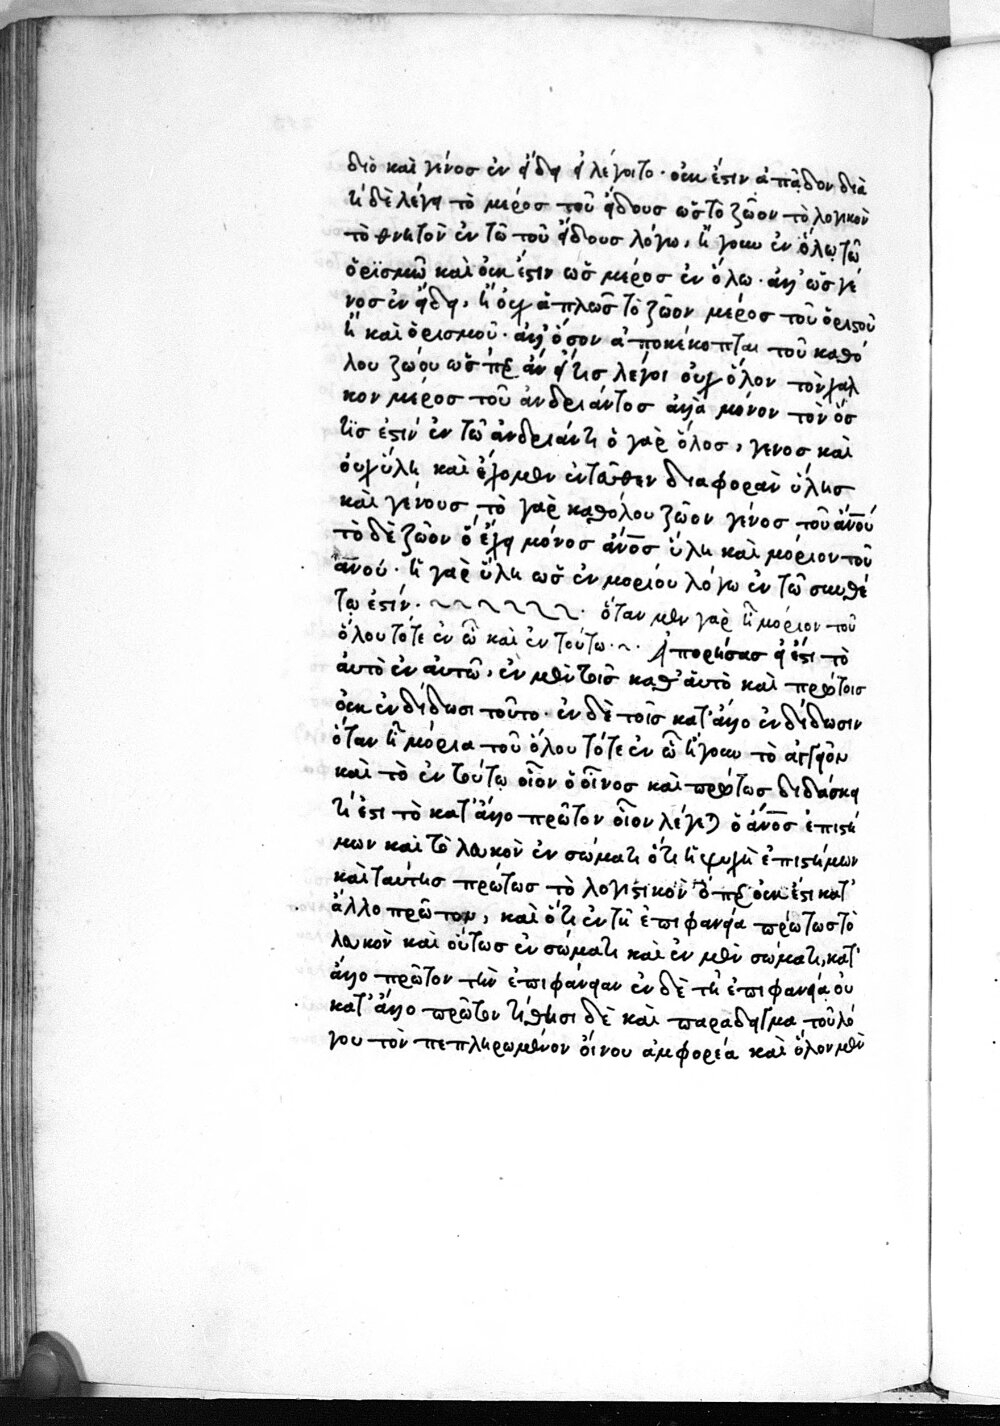 διὸ καὶ γένος ἐν εἴδει εἰ λέγοιτο · οὐκ ἔστιν ἀπᾷδον διὰ
τί δὲ λέγει τὸ μέρος τοῦ εἴδους ὡς τὸ ζῶον τὸ λογικὸν
τὸ θνητὸν ἐν τῶ τοῦ εἴδους λόγω, ἤγουν ἐν ὅλω τῶ
ὁρϊσμῶ καὶ οὐκ ἔστιν ὡς μέρος ἐν ὅλω · ἀλλ' ὡς γέ
νος ἐν εἴδει, ἢ οὐχ ἁπλῶς τὸ ζῶον μέρος τοῦ ὁριστοῦ
ἢ καὶ ὁρισμοῦ · ἀλλ' ὅσον ἀποκέκοπται τοῦ καθό
λου ζώου ὡσπερ ἂν εἴ τις λέγοι οὐχ ὅλον τὸν χαλ
κὸν μέρος τοῦ ἀνδριάντος ἀλλὰ μόνον τὸν ὅσ
τις ἐστὶν ἐν τῶ ἀνδριάντι ὁ γὰρ ὅλος, γένος καὶ
οὐχ ὕλη καὶ ἔχομεν ἐνταῦθεν διαφορὰν ὕλης
καὶ γένους τὸ γὰρ καθόλου ζῶον γένος τοῦ ἀνου
τὸ δὲ ζῶον ὃ ἔχει μόνος ἄνος ὕλη καὶ μόριον τοῦ
ἀνου · ἡ γὰρ ὕλη ὡς ἐν μορίου λόγω ἐν τῶ συνθέ
τω ἐστίν · ὅταν μὲν γὰρ ἦ μόριον τοῦ
ὅλου τότε ἐν ὧ καὶ ἐν τούτω · ~ · Ἀπορήσας εἰ ἔστι τὸ
αὐτὸ ἐν αὑτῶ, ἐν μὲν τοῖς καθ' αὑτὸ καὶ πρώτοις
οὐκ ἐνδίδωσι τοῦτο · ἐν δὲ τοῖς κατ' ἄλλο ἐνδίδωσιν
ὅταν ἦ μόρια τοῦ ὅλου τότε ἐν ὧ ἤγουν τὸ ἀγγεῖον
καὶ τὸ ἐν τούτω οἷον ὁ οἶνος καὶ πρώτως διδάσκει
τί ἐστι τὸ κατ' ἄλλο πρῶτον οἷον λέγεται ὁ ἄνος ἐπιστή
μων καὶ τὸ λευκὸν ἐν σώματι ὅτι ἡ ψυχὴ ἐπιστήμων
καὶ ταύτης πρώτως τὸ λογιστικὸν ὅπερ οὐκ ἔστι κατ'
ἄλλο πρῶτον, καὶ ὅτι ἐν τῆ ἐπιφανεία πρώτως τὸ
λευκὸν καὶ οὕτως ἐν σώματι καὶ ἐν μὲν σώματι, κατ'
ἄλλο πρῶτον τὴν ἐπιφάνειαν ἐν δὲ τῆ ἐπιφανεία οὐ
κατ' ἄλλο πρῶτον τίθησι δὲ καὶ παράδειγμα τοῦ λό
γου τὸν πεπληρωμένον οἴνου ἀμφορέα καὶ ὅλον μὲν